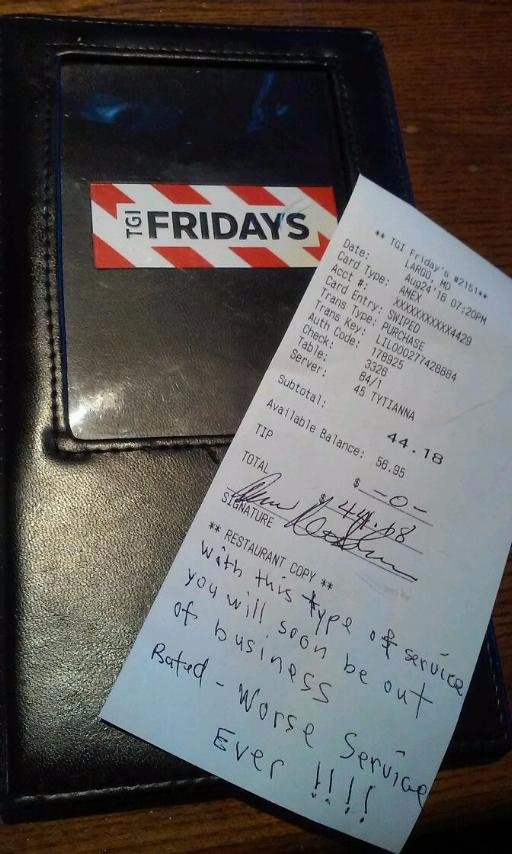 TGI FRIDAYS
** TGI Friday's #2151**
LARGO, MD
Date: Aug24'16 07:20PM
Card Type: AMEX
Acct #: XXXXXXXXXXX4429
Card Entry: SWIPED
Trans Type: PURCHASE
Trans Key: LIL000277428884
Auth Code: 178925
Check: 3326
Table: 84/1
Server: 45 TYTIANNA
Subtotal: 44.18
Available Balance: 56.95
TIP $ -0-
TOTAL $ 44.18
SIGNATURE
** RESTAURANT COPY **
With this type of service
you will soon be out
of business
Rated - Worse Service
Ever !!!!